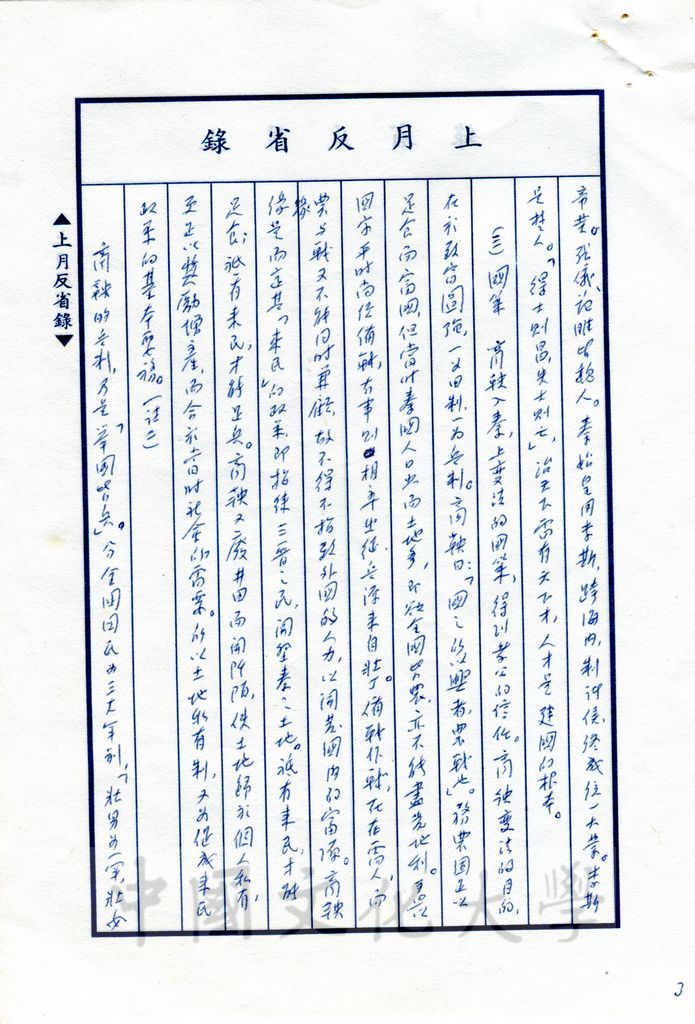 上月反省錄
帝業。張儀、范睢皆魏人。秦始皇用李斯,跨海內,制諸侯,終成統一大業。李斯
是楚人。「得士則昌,失士則亡」,治天下需有天下才,人才是建國的根本。
(三)國策 商鞅入秦,上變法的國策,得到孝公的信任。商鞅變法的目的,
在於致富圖強,一為田制,一為兵制。商鞅曰:「國之所以興者,農戰也」。務農固足以
足食而富國,但當時秦國人口少而土地多,即令全國皆農,亦不能盡其地利。
國家平時尚須備戰,有事則相率出征,兵源來自壯丁,備戰作戰,在在需人,而
農與戰又不能同時兼顧,故不得不招致外國的人力,以開發國內的富源。商鞅
緣是而定其「來民」的政策,即招徠三晉之民,開墾秦之土地。祇有來民,才能
足食;祇有來民,才能足兵。商鞅又廢井田而開阡陌,使土地歸於個人私有,
更足以獎勵增產,而合於當時社會的需要。所以土地私有制,又為促成來民
政策的基本要務。(註二)
商鞅的兵制,乃是「舉國皆兵」。分全國國民為三大年別,「壯男為一軍,壯女
▲上月反省錄▼
中國文化大學
3